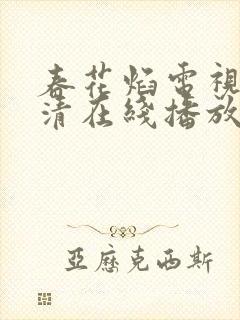 春花焰電視
清在綫播放
亞歷克西斯